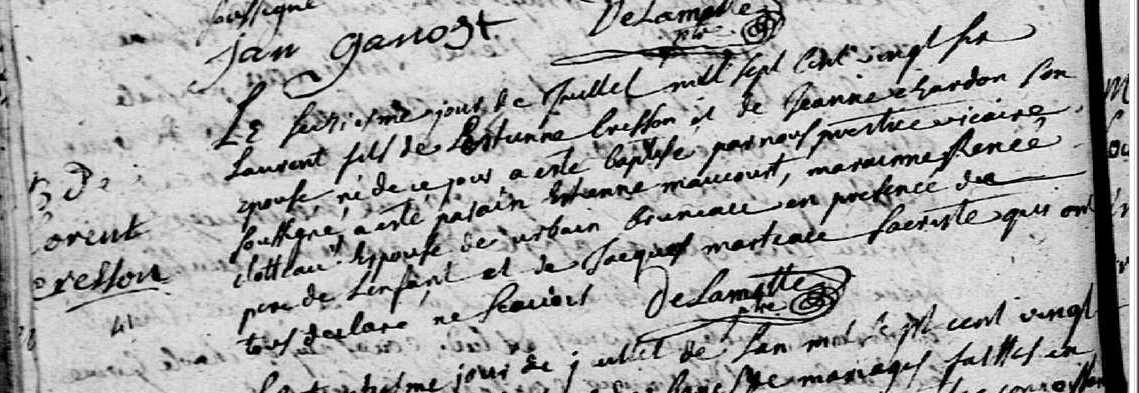 soussigné
Jan Ganost DeLamotte
ptre
Le seiziesme jour de Juillet mill sept cent vingt six
Laurent fils de Estienne Cresson et de Jeanne chardon son
epouse né de ce jour a esté baptisé par nous prestre vicaire
soussigné, a esté parain Estienne maucourt, marainne Renée
clotteau Epouse de urbain bruneau en presence du
pere de Lenfant et de Jacques marteau sacriste qui ont
tous declaré ne scavoir DeLamotte
ptre
B De
orent
cresson
jour de juillet de Lan mil sept cent vingt
de mariages faittes en